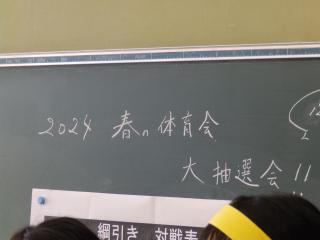 2024 春の体育会
大抽選会!!
綱引き 対戦表